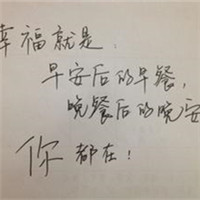 幸福就是：
早安后的早餐，
晚餐后的晚安
你都在！